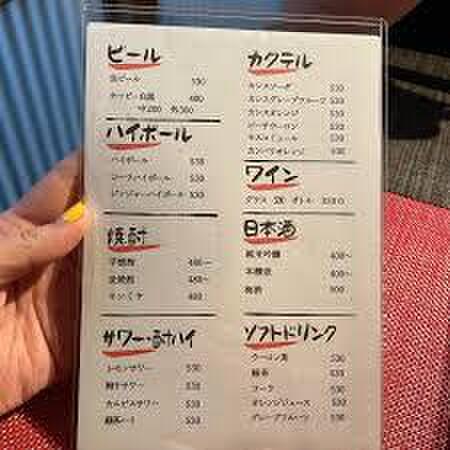 ビール
生ビール 530
ホッピー白黒 480
中200 外300
ハイボール
ハイボール 530
コークハイボール 530
ジンジャーハイボール 530
焼酎
芋焼酎 480〜
麦焼酎 480〜
キンミヤ 480
サワー・酎ハイ
レモンサワー 530
梅干サワー 530
カルピスサワー 530
緑茶ハイ 530
カクテル
カシスソーダ 530
カシスグレープフルーツ 530
カシスオレンジ 530
ピーチウーロン 530
モスコミュール 530
カンパリオレンジ 530
ワイン
グラス 530 ボトル
日本酒
純米吟醸
本醸造
梅酒
ソフトドリンク
ウーロン茶 330
緑茶 330
コーラ 330
オレンジジュース 330
グレープフルーツ 330